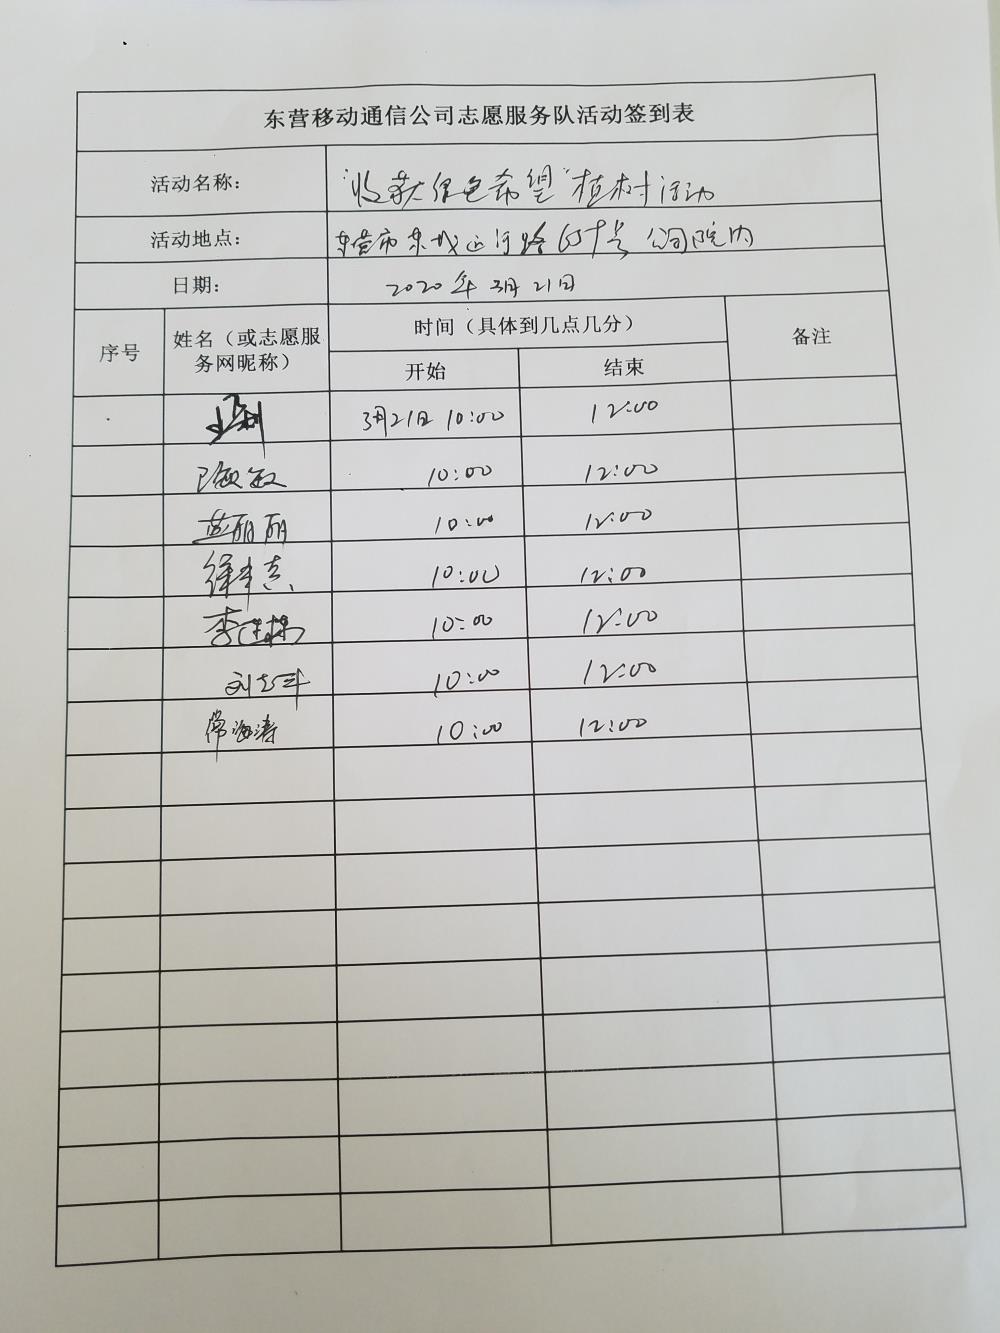 东营移动通信公司志愿服务队活动签到表
活动名称： “收获绿色希望”植树活动
活动地点： 东营市东城运河路 号 公司院内
日期： 2020年3月21日
序号 姓名（或志愿服务网昵称） 时间（具体到几点几分） 备注
开始 结束
3月21日 10:00 12:00
10:00 12:00
丽丽 10:00 12:00
徐 10:00 12:00
李 10:00 12:00
刘志 10:00 12:00
常海涛 10:00 12:00